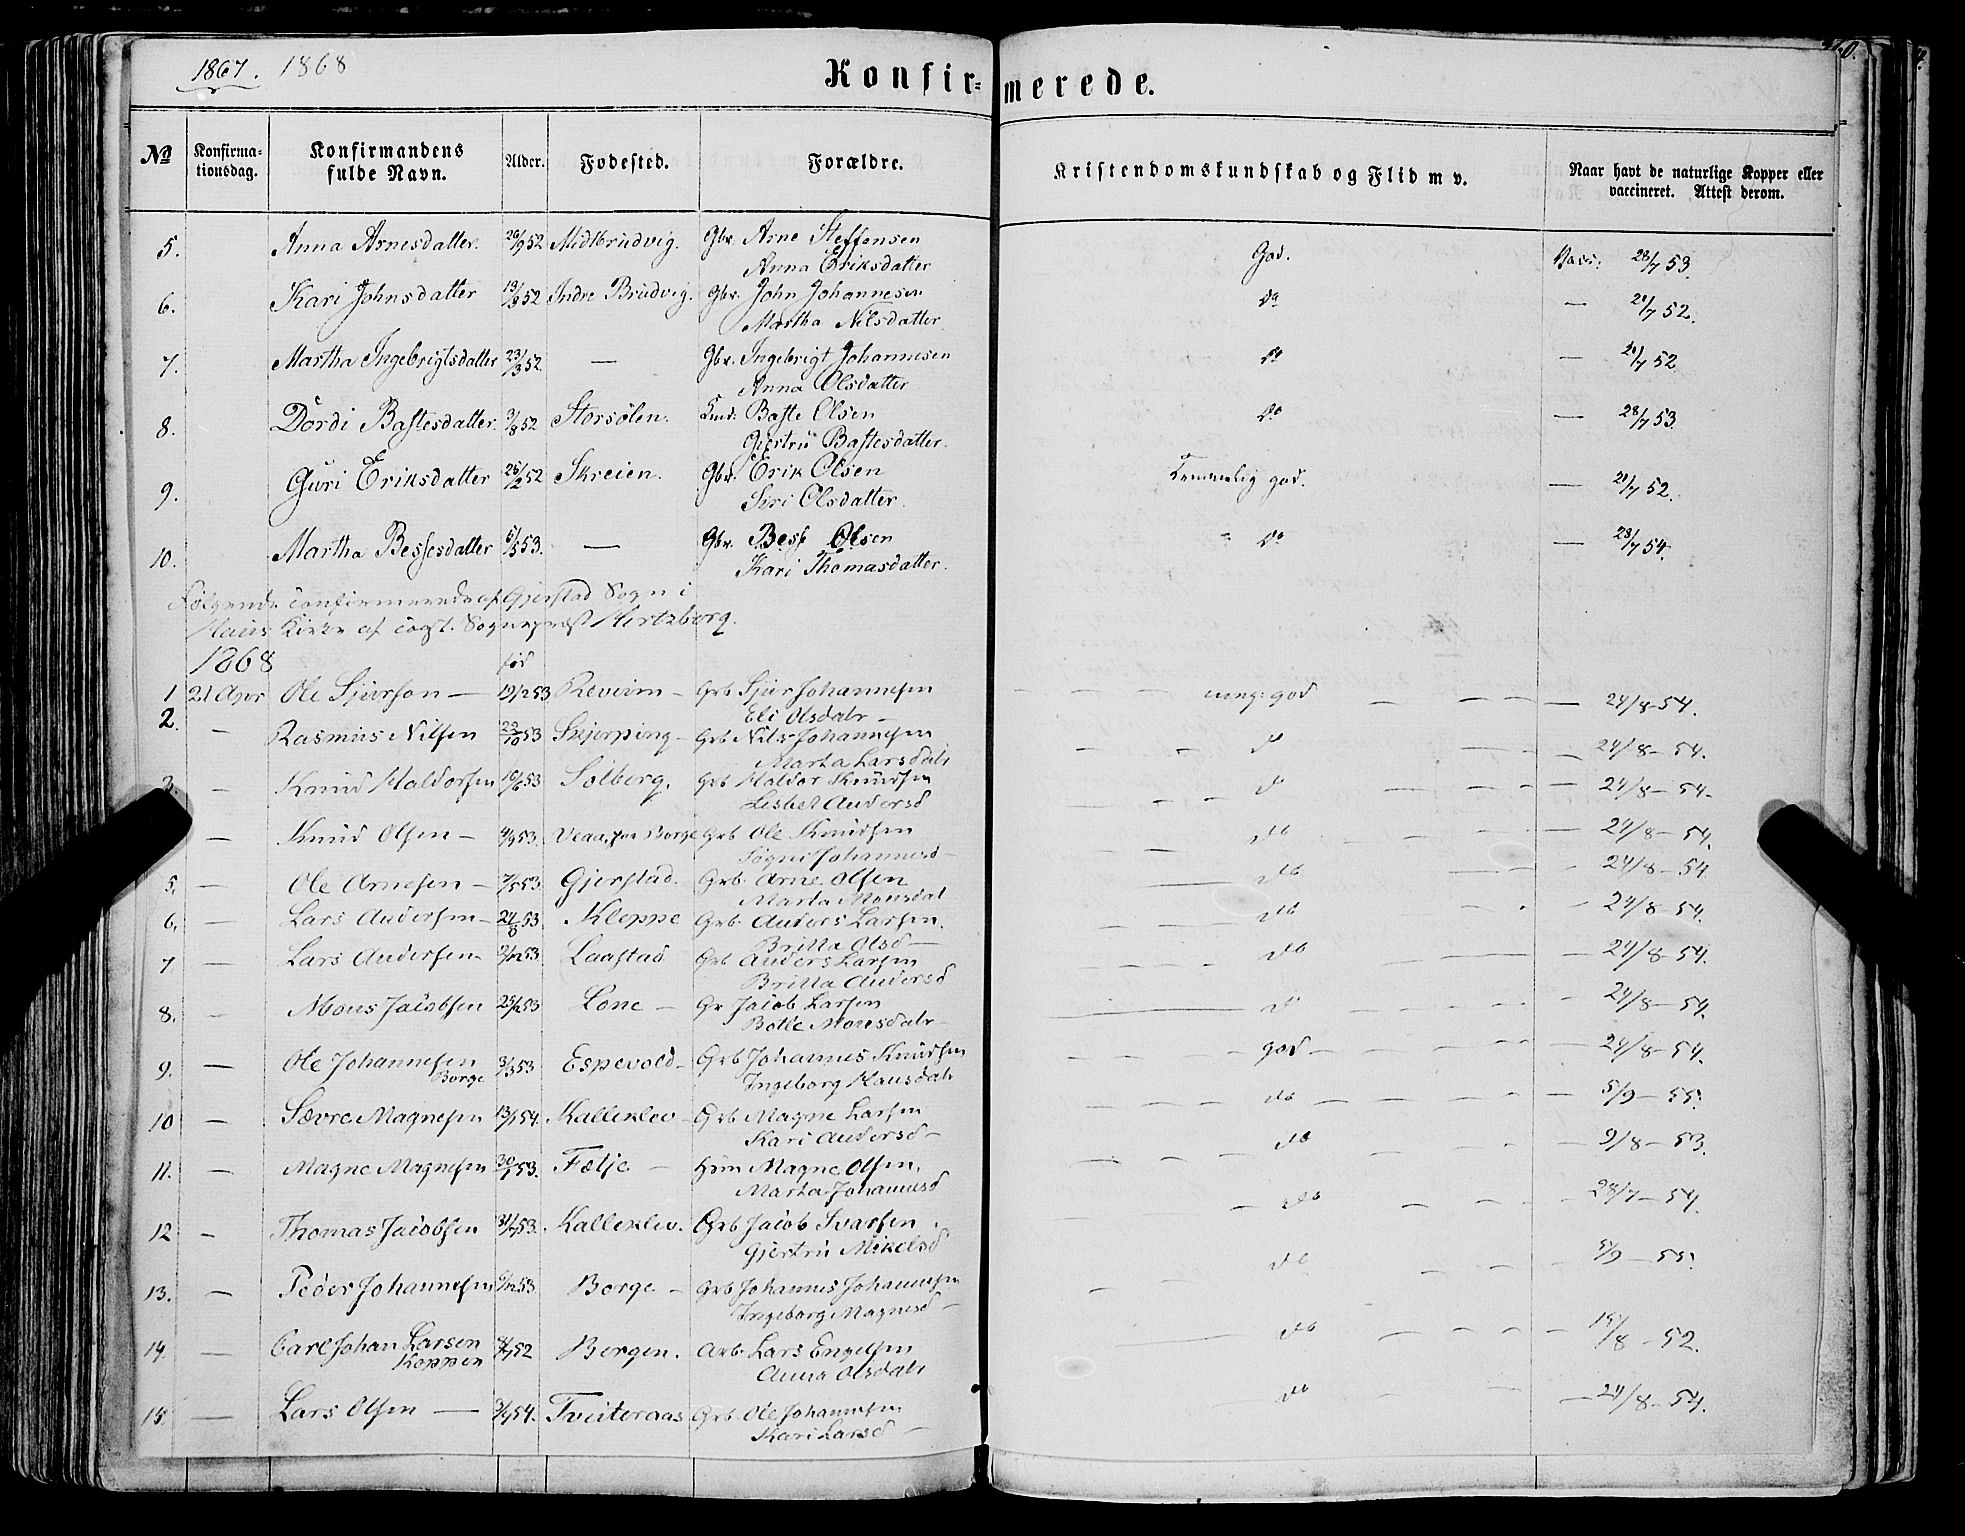 1867. 1868
Konfirmerede.
No Konfirmationsdag. Konfirmandens fulde Navn. Alder. Fødested. Forældre. Kristendomskundskab og Flid m v. Naar havt de naturlige Kopper eller vaccineret. Attest derom.
5. Anna Arnesdatter. 52 Midtbrudvig. Gbr. Arne Steffensen God. Vacc. 28/7 53.
Anna Eriksdatter
6. Kari Johnsdatter 52 Indre Brudvig. Gbr. John Johannesen do — 21/7 52.
Martha Nilsdatter
7. Martha Ingebrigtsdatter 23/3 52. — Gbr. Ingebrigt Johannesen do — 21/7 52
Anna Olsdatter
8. Dordi Bastesdatter. 3/8 52 Storsølen. Baste Olsen do — 28/7 53.
Gjertru Bastesdatter.
9. Guri Eriksdatter 52 Skreien. Gbr. Erik Olsen Temmelig god. — 21/7 52.
Siri Olsdatter.
10. Martha Bessesdatter 5/5 53. — Gbr. Bess Olsen do — 28/7 54.
Kari Thomasdatter.
Følgende confirmerede af Gjerstad Sogn i
Haus Kirke af const. Sognepræst Hertzberg.
1868 fød
1 21 Apr Ole Sjursen — 19/12 53 Revurm — Grb Sjur Johannesen meg. god — 24/8 54.
Eli Olsdatr —
2. — Rasmus Nilsen 22/10 53 Skjerping — Grb Nils Johannesen d 24/8 — 54.
Marta Larsdatr
3. — Knud Haldorsen 16/6 53 Solberg. Grb Haldor Knudsen d — 24/8 — 54.
Lisbet Andersd
— Knud Olsen — 4/9 53. Borge Grb Ole Knudsen do — 24/8 — 54.
Johannesd —
5. — Ole Arnesen — 7/5 53. Gjerstad. Grb. Arne Olsen do — 24/8 — 54.
Marta Monsdat
6. — Lars Andersen — 24/8 53. Kleppe Grb. Anders Larsen. do — 24/8 — 54.
Britta Olsd —
7 — Lars Andersen 2/12 53. Laastad Grb Anders Larsen do — 24/8 — 54.
Britta Andersd
8. — Mons Jacobsen 53 Lone — Gr Jacob Larsen d — 24/8 — 54.
Botle Monsdatr —
9. — Ole Johannesen 3/3 53 Espevold — Grb Johannes Knudsen — god — 24/8 — 54.
Borge Ingeborg Hansdatr
10 — Sævre Magnesen 13/1 54. Kalleklev — Grb Magne Larsen do — 5/9 — 55.
Kari Andersd —
11. — Magne Magnesen 53. Fætje — Huusm Magne Olsen. do — 9/8 — 53.
Marta Johannesd
12 — Thomas Jacobsen 53. Kalleklev. Grb Jacob Ivarsen do — 28/7 — 54.
Gjertru Mikelsd
13. — Peder Johannesen 53 Borge — Grb Johannes Johannesen do — 5/9 — 55.
Ingeborg Magnesd —
14. — Carl Johan Larsen 52 Bergen. Arb. Lars Engelsen do — 15/8 — 52.
Koppen Anna Olsdatr
15 — Lars Olsen — 54. Tveiteraas Grb. Ole Johannesen do — 24/8 — 54.
Kari Larsd —